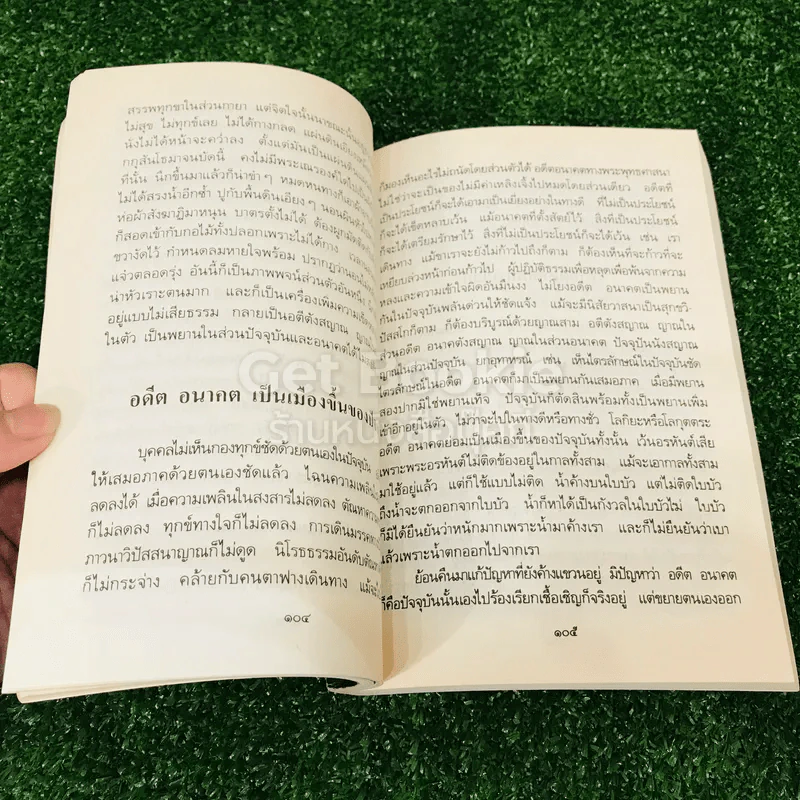 สรรพทุกขาในส่วนกายา แต่จิตใจนั้นนาขณะนั้น
ไม่สุข ไม่ทุกข์เลย ไม่ได้กางกลด แผ่นดินเอียง
นังไม่ได้หน้าจะคว่ำลง ตั้งแต่มันเป็นแผ่นดิน
กกุสันโธมาจนบัดนี้ คงไม่มีพระเณรองค์ใดไป
ที่นั้น นึกขึ้นมาแล้วก็น่าขำๆ หมดหนทางก็เอา
ไม่ได้สรงน้ำอีกซ้ำ ปูกับพื้นดินเอียงๆ นอน
ห่อผ้าสังฆาฏิมาหนุน บาตรตั้งไม่ได้ ต้องผูกมัด
ก็สอดเข้ากับกอไม้ทั้งปลอกเพราะไม่ได้กาง
ขวางงัดไว้ กำหนดลมหายใจพร้อม ปรากฏว่านอน
แจ๋วตลอดรุ่ง อันนี้ก็เป็นภาพพจน์ส่วนตัวอันหนึ่ง
น่าหัวเราะตนมาก และก็เป็นเครื่องเพิ่มความ
อยู่แบบไม่เสียธรรม กลายเป็นอตีตังสญาณ
ในตัว เป็นพยานในส่วนปัจจุบันและอนาคตได้
อดีต อนาคต เป็นเมืองขึ้นของ
บุคคลไม่เห็นกองทุกข์ชัดด้วยตนเองในปัจจุบัน
ให้เสมอภาคด้วยตนเองชัดแล้ว ไฉนความเพลิน
ลดลงได้ เมื่อความเพลินในสงสารไม่ลดลง ตัณหา
ก็ไม่ลดลง ทุกข์ทางใจก็ไม่ลดลง การเดินมรรค
ภาวนาวิปัสสนาญาณก็ไม่ดูด นิโรธธรรมอันดับตัณหา
ก็ไม่กระจ่าง คล้ายกับคนตาฟางเดินทาง แม้จะ
๑๐๔
ก็มองเห็นอะไรไม่ถนัดโดยส่วนตัวได้ อดีตอนาคตทางพระพุทธศาสนา
ไม่ใช่ว่าจะเป็นของไม่มีค่าเหลิงเจิ้งไปหมดโดยส่วนเดียว อดีตที่
เป็นประโยชน์ก็จะได้เอามาเป็นเยี่ยงอย่างในทางดี ที่ไม่เป็นประโยชน์
ก็จะได้เข็ดหลาบเว้น แม้อนาคตที่ตั้งสัตย์ไว้ สิ่งที่เป็นประโยชน์
ก็จะได้เตรียมรักษาไว้ สิ่งที่ไม่เป็นประโยชน์ก็จะได้เว้น เช่น เรา
เดินทาง แม้ขาเราจะยังไม่ก้าวไปถึงก็ตาม ก็ต้องเห็นที่จะก้าวที่จะ
เหยียบล่วงหน้าก่อนก้าวไป ผู้ปฏิบัติธรรมเพื่อหลุดเพื่อพ้นจากความ
หลงและความเข้าใจผิดอันมืนงง ไม่โยงอดีต อนาคตเป็นพยาน
กันในปัจจุบันพลันด่วนให้ชัดแจ้ง แม้จะมีนิสัยวาสนาเป็นสุกขวิ-
ปัสสโกก็ตาม ก็ต้องบริบูรณ์ด้วยญาณสาม อตีตังสญาณ ญาณใน
ส่วนอดีต อนาคตังสญาณ ญาณในส่วนอนาคต ปัจจุปันนังสญาณ
ญาณในส่วนปัจจุบัน ยกอุทาหรณ์ เช่น เห็นไตรลักษณ์ในปัจจุบันชัด
ไตรลักษณ์ในอดีต อนาคตก็มาเป็นพยานกันเสมอภาค เมื่อมีพยาน
สองปากมิใช่พยานเท็จ ปัจจุบันก็ตัดสินพร้อมทั้งเป็นพยานเพิ่ม
เข้าอีกอยู่ในตัว ไม่ว่าจะไปในทางดีหรือทางชั่ว โลกิยะหรือโลกุตตระ
อดีต อนาคตย่อมเป็นเมืองขึ้นของปัจจุบันทั้งนั้น เว้นอรหันต์เสีย
เพราะพระอรหันต์ไม่ติดข้องอยู่ในกาลทั้งสาม แม้จะเอากาลทั้งสาม
มาใช้อยู่แล้ว แต่ก็ใช้แบบไม่ติด น้ำค้างบนใบบัว แต่ไม่ติดใบบัว
ถึงน้ำจะตกออกจากใบบัว น้ำก็หาได้เป็นกังวลในใบบัวไม่ ใบบัว
ก็มิได้ยืนยันว่าหนักมากเพราะน้ำมาค้างเรา และก็ไม่ยืนยันว่าเบา
แล้วเพราะน้ำตกออกไปจากเรา
ย้อนคืนมาแก้ปัญหาที่ยังค้างแขวนอยู่ มีปัญหาว่า อดีต อนาคต
ก็คือปัจจุบันนั้นเองไปร้องเรียกเชื้อเชิญก็จริงอยู่ แต่ขยายตนเองออก
๑๐๕
Get Bookie